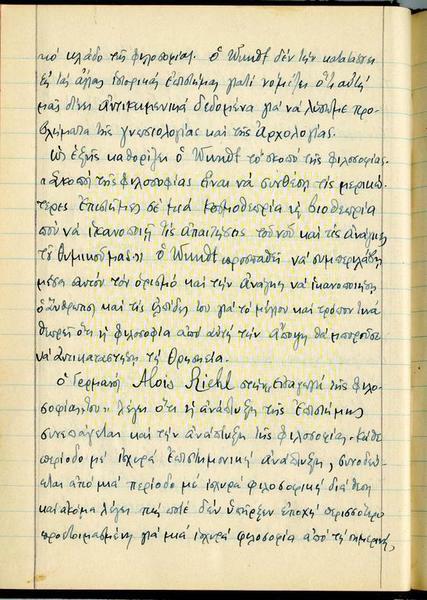 κό κλάδο τῆς φιλοσοφίας. Ὁ Wundt δέν τήν κατατάσσει
εἰς τάς ἄλλας ἱστορικάς ἐπιστήμας γιατί νομίζει ὅτι αὐτή
μᾶς δίνει ἀντικειμενικά δεδομένα γιά νά λύσωμε προ-
βλήματα τῆς γνωσιολογίας καί τῆς ἀρχολογίας.
Ὡς ἑξῆς καθορίζει ὁ Wundt τό σκοπό τῆς φιλοσοφίας.
"Σκοπός τῆς φιλοσοφίας εἶναι νά συνθέση τίς μερικώ-
τερες ἐπιστῆμες σέ μιά κοσμοθεωρία ἤ βιοθεωρία
πού νά ἱκανοποιῆ τίς ἀπαιτήσεις τοῦ νοῦ καί τίς ἀνάγκες
τοῦ θυμικοῦ μας." Ὁ Wundt προσπαθεῖ νά συμπεριλάβη
μέσα σ' αὐτόν τόν ὁρισμό καί τήν ἀνάγκη νά ἱκανοποιήση
ὁ ἄνθρωπος καί τίς ἐλπίδες του γιά τό μέλλον καί τρόπον τινά
θαρρεῖ ὅτι ἡ φιλοσοφία ἀπό αὐτή τήν ἄποψη θά μποροῦσε
νά ἀντικαταστήση τή θρησκεία.
Ὁ Γερμανός Alois Riehl στήν "Εἰσαγωγή τῆς φιλο-
σοφίας του" λέγει ὅτι ἡ ἀνάπτυξη τῆς ἐπιστήμης
συνεπάγεται καί τήν ἀνάπτυξη τῆς φιλοσοφίας. Κάθε
περίοδο μέ ἰσχυρά ἐπιστημονική ἀνάπτυξη, συνοδεύ-
εται ἀπό μιά περίοδο μέ ἰσχυρά φιλοσοφική διάθεση
καί ἀκόμα λέγει πώς ποτέ δέν ὑπῆρξεν ἐποχή περισσότερο
προετοιμασμένη γιά μιά ἰσχυρά φιλοσοφία ἀπό τή σημερινή,